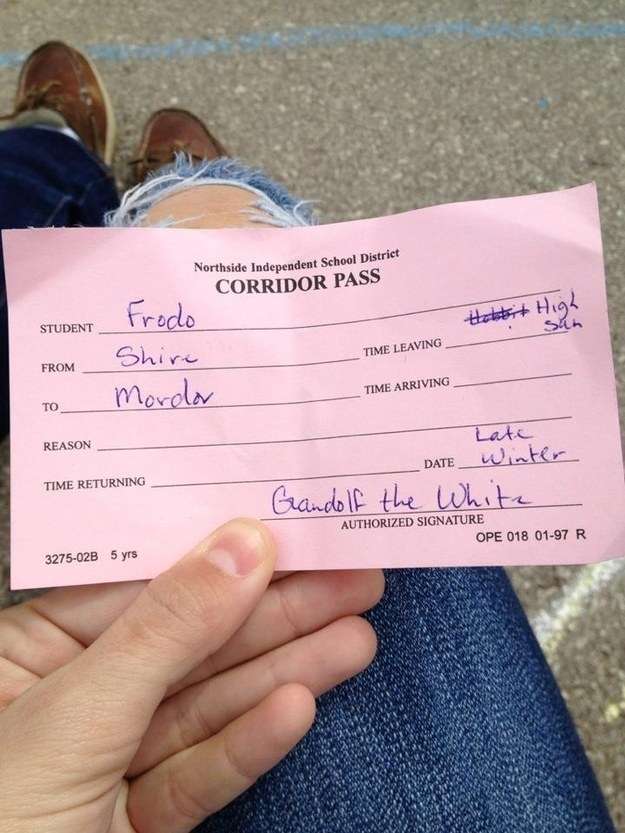 Northside Independent School District
CORRIDOR PASS
STUDENT Frodo
FROM Shire
TIME LEAVING Hobbit High Sun
TO Mordor
TIME ARRIVING
REASON
TIME RETURNING
DATE Late Winter
Gandolf the White
AUTHORIZED SIGNATURE
OPE 018 01-97 R
3275-02B 5 yrs